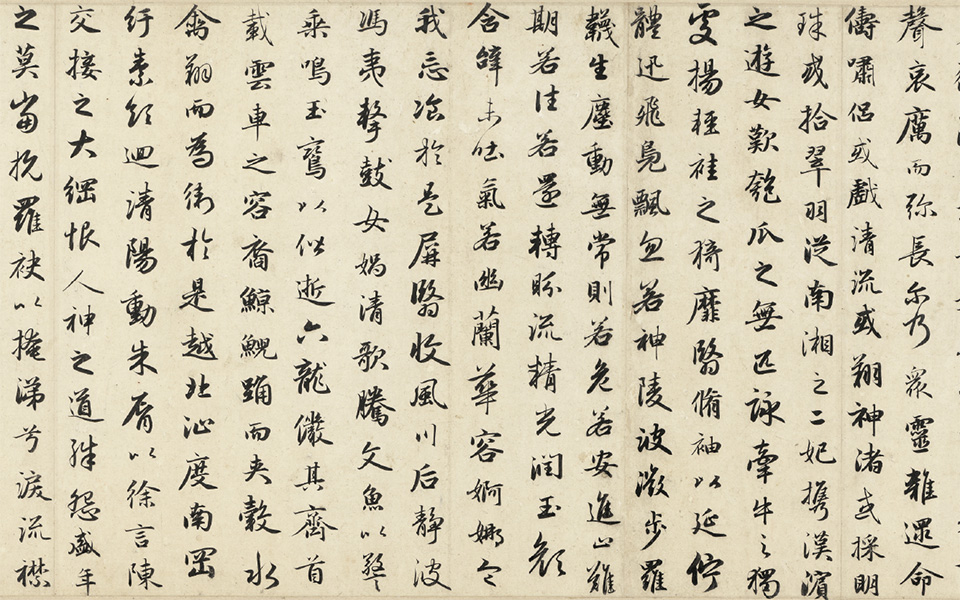 聲哀厲而弥長尓乃衆靈雜遝命
儔嘯侶或戲清流或翔神渚或採明
珠或拾翠羽從南湘之二妃携漢濱
之遊女歎匏瓜之無匹詠牽牛之獨
處揚輕袿之猗靡翳脩袖以延佇
體迅飛鳧飄忽若神陵波微步羅
韈生塵動無常則若危若安進止難
期若往若還轉眄流精光潤玉顏
含辭未吐氣若幽蘭華容婀娜令
我忘飡於是屏翳收風川后靜波
馮夷擊鼓女媧清歌騰文魚以警
乘鳴玉鸞以偕逝六龍儼其齊首
載雲車之容裔鯨鯢踊而夾轂水
禽翔而為衛於是越北沚度南岡
紆素領迴清陽動朱脣以徐言陳
交接之大綱恨人神之道殊怨盛年
之莫當抗羅袂以掩涕兮淚流襟